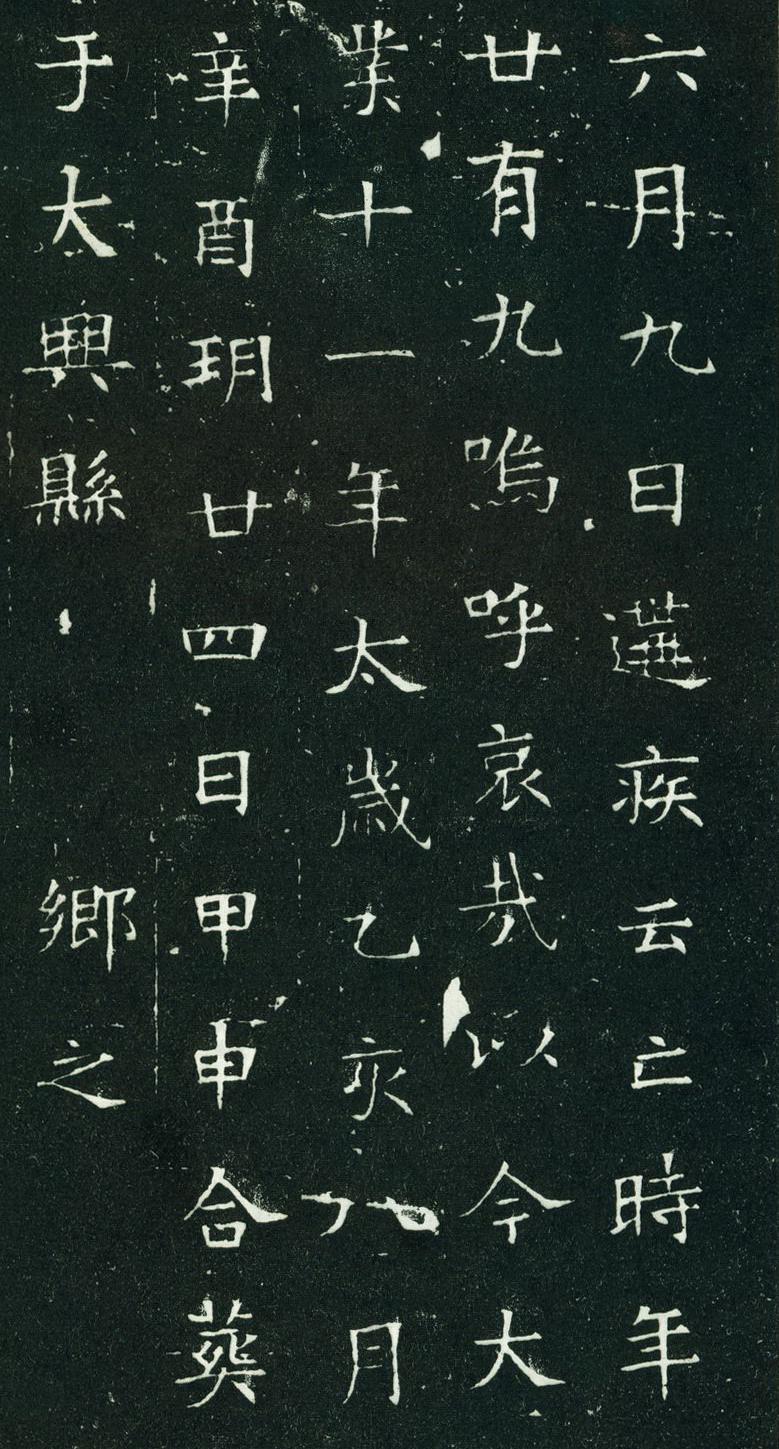 六月九日遘疾云亡時年
廿有九嗚呼哀哉以今大
業十一年太歲乙亥八月
辛酉朔廿四日甲申合葬
于大興縣　　鄉之